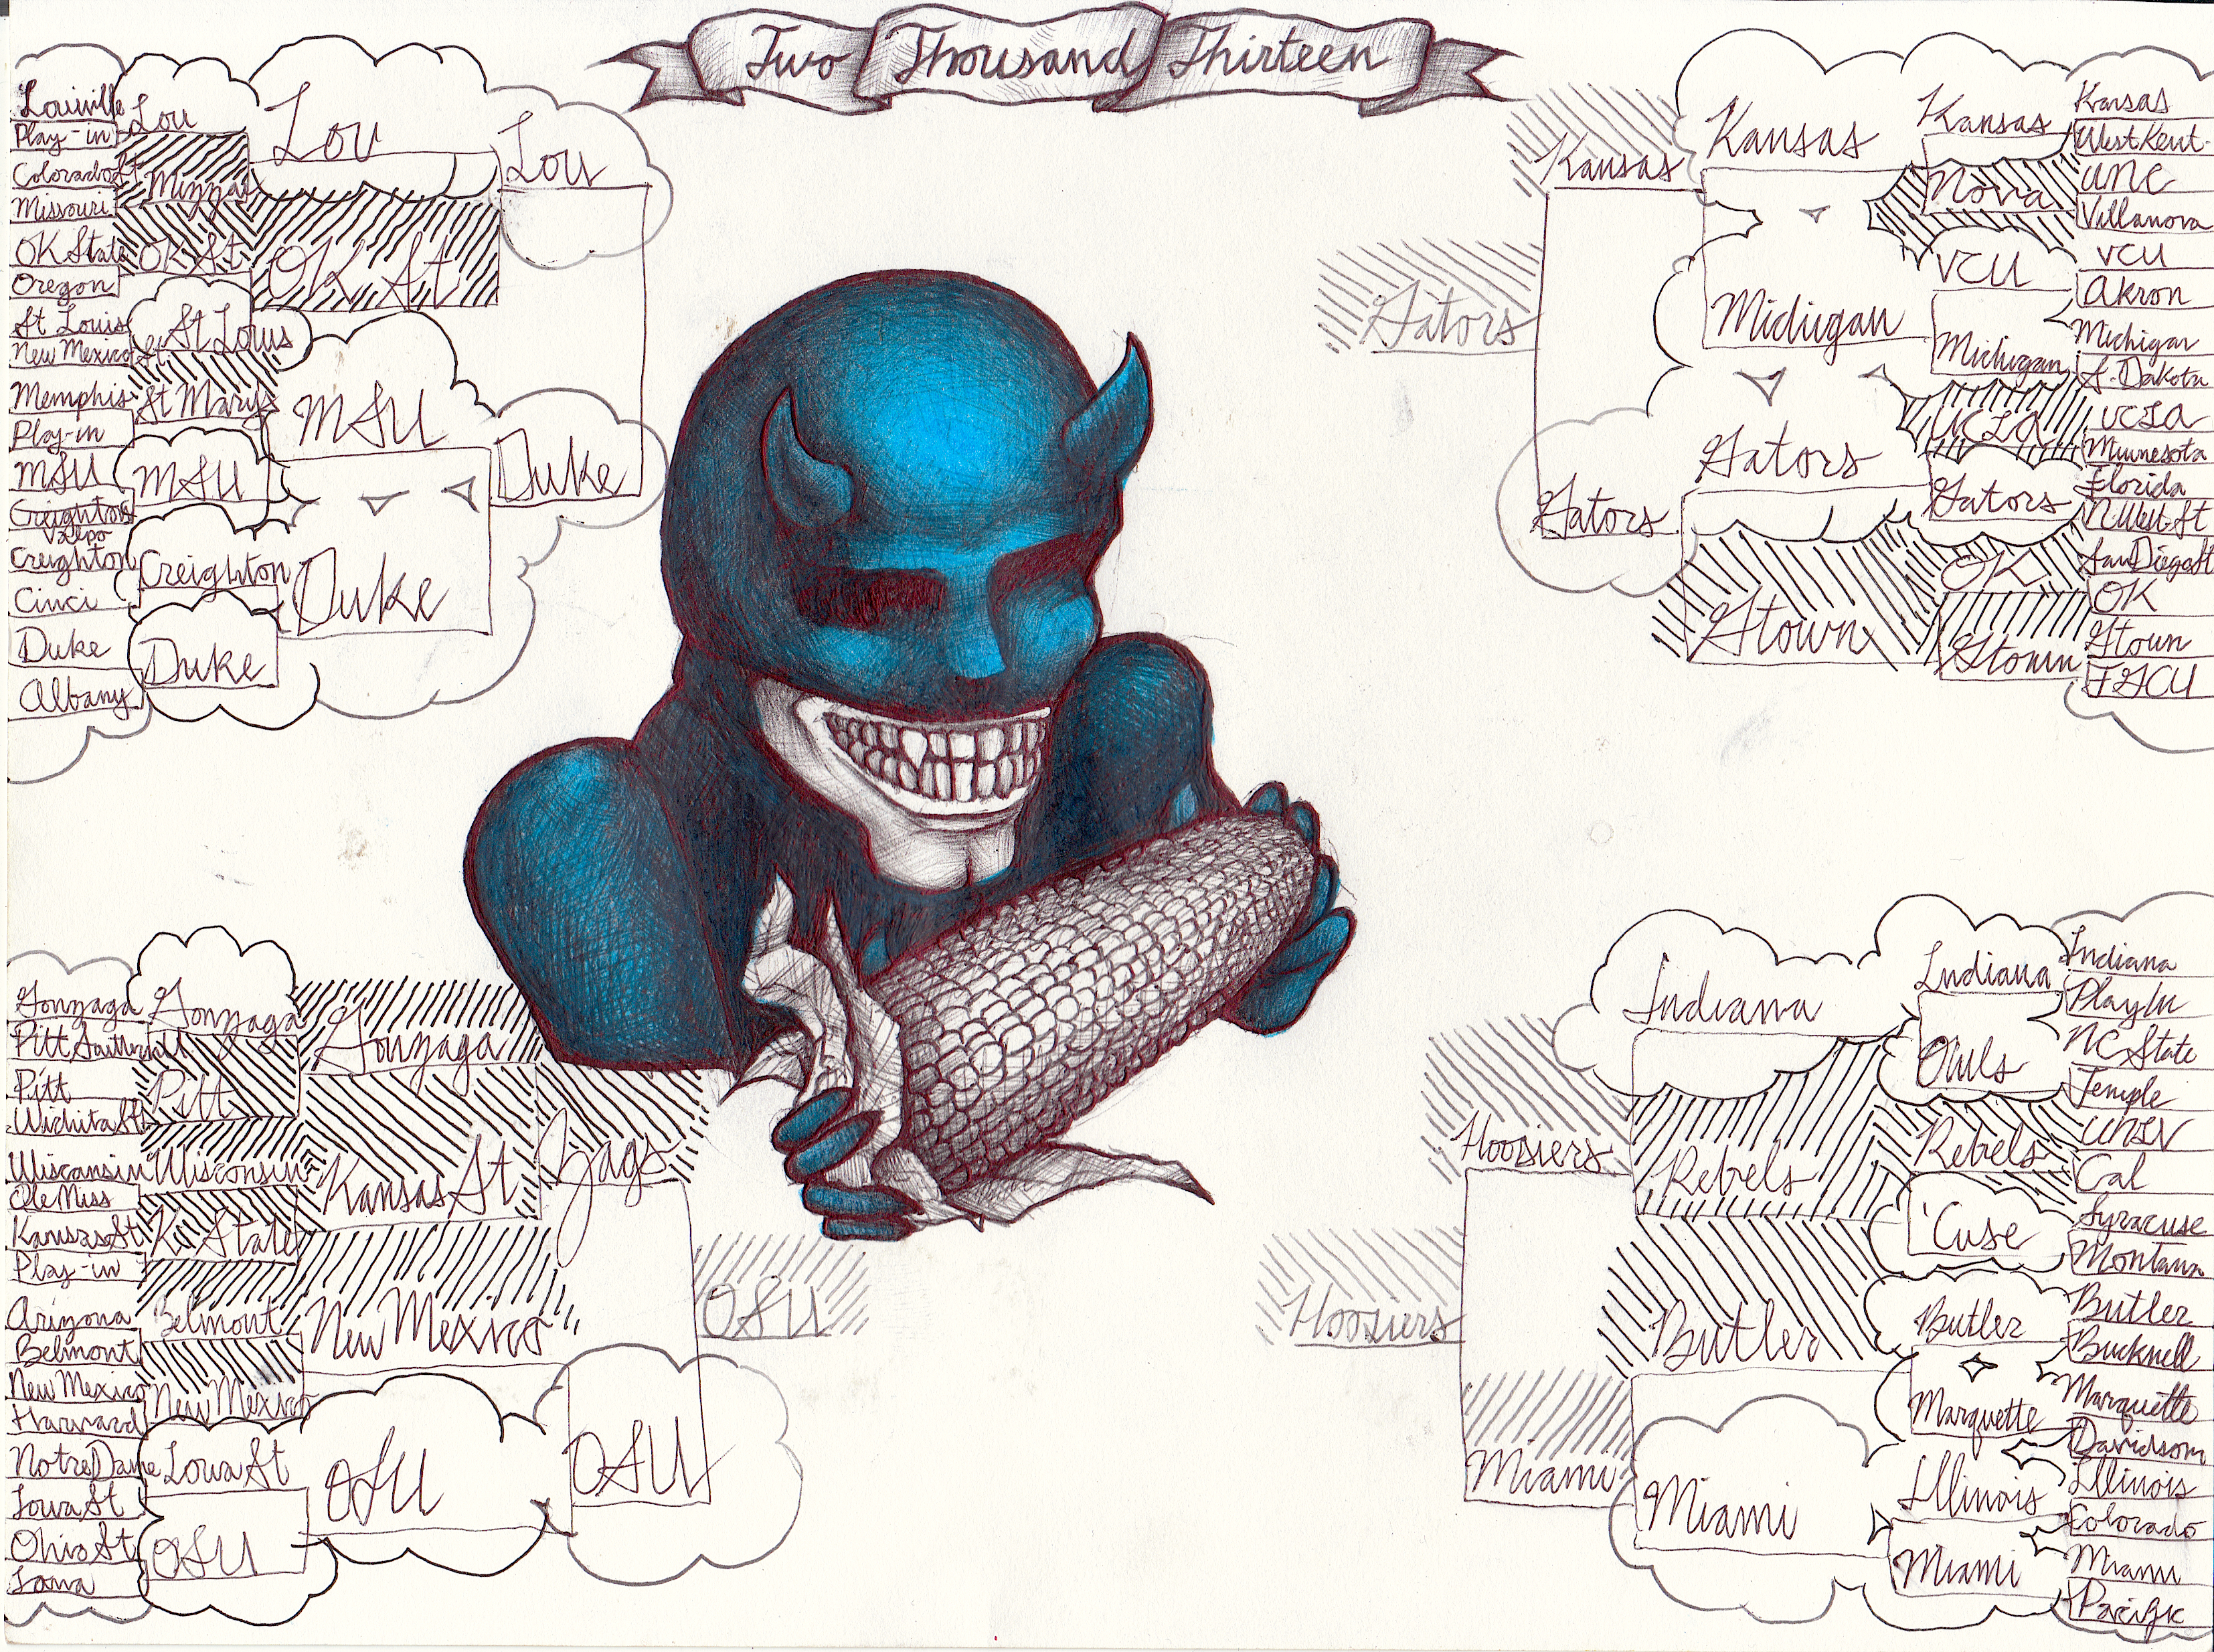 Two Thousand Thirteen
Louiville
Play-in
Colorado St
Missouri
OK State
Oregon
St Louis
New Mexico St.
Memphis
Play-in
MSU
Valpo
Creighton
Cinci
Duke
Albany
Lou
Mizza
OK St
St Louis
St Marys
MSU
Creighton
Duke
Lou
OK St
MSU
Duke
Lou
Duke
Gonzaga
Pitt
Wichita St
Wisconsin
Ole Miss
Kansas St
Play-in
Arizona
Belmont
New Mexico
Harvard
Notre Dame
Iowa St
Ohio St
Iona
Gonzaga
Pitt
Wisconsin
K State
Belmont
New Mexico
Iowa St
OSU
Gonzaga
Kansas St
New Mexico
OSU
Zags
OSU
OSU
Kansas
West Kent.
UNC
Villanova
VCU
Akron
Michigan
S. Dakota
UCLA
Minnesota
Florida
N West St
San Diego St
OK
Gtown
FGCU
Kansas
Nova
VCU
Michigan
UCLA
Gators
OK
Gtown
Kansas
Michigan
Gators
Gtown
Kansas
Gators
Gators
Indiana
Play In
NC State
Temple
UNLV
Cal
Syracuse
Montana
Butler
Bucknell
Marquette
Davidson
Illinois
Colorado
Miami
Pacific
Indiana
Owls
Rebels
'Cuse
Butler
Marquette
Illinois
Miami
Indiana
Rebels
Butler
Miami
Hoosiers
Miami
Hoosiers